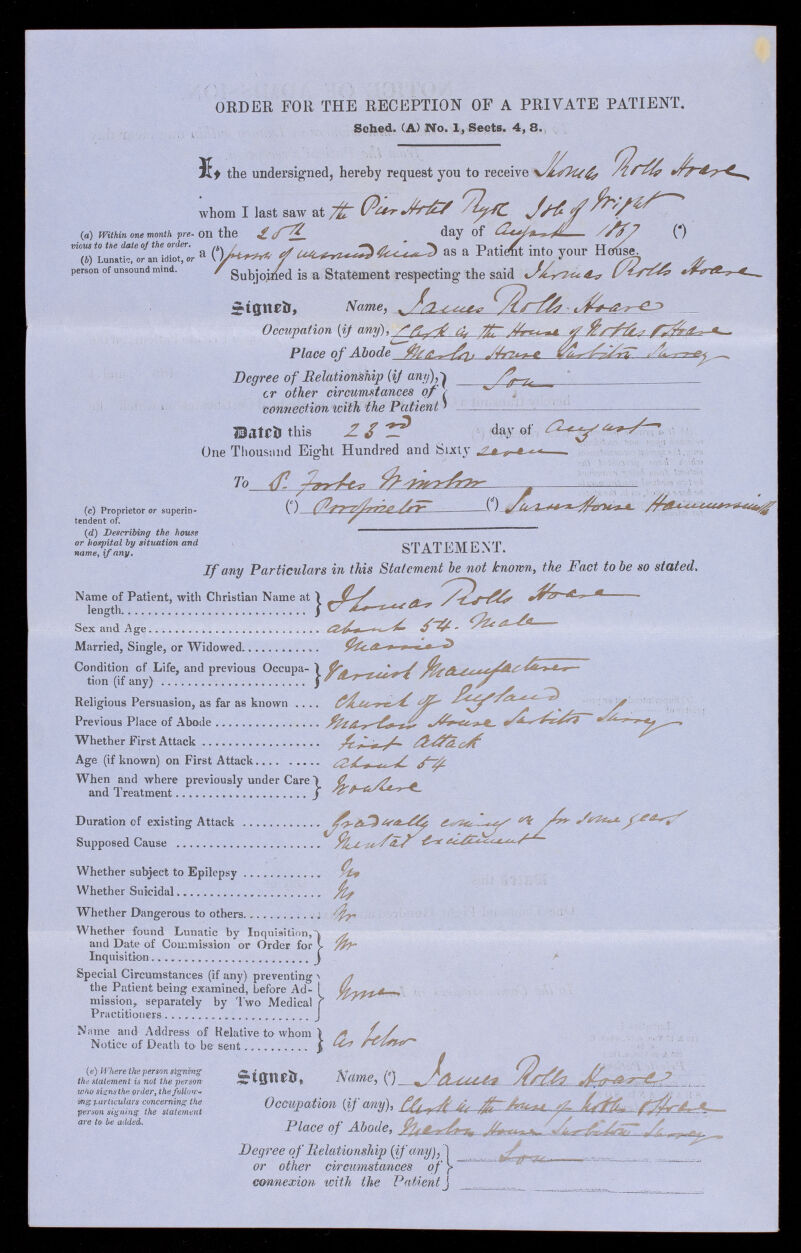 ORDER FOR THE RECEPTION OF A PRIVATE PATIENT.
Sched. (A) No. 1, Sects. 4, 8.
I, the undersigned, hereby request you to receive Thomas Rolls Hoare
whom I last saw at the Pier Hotel Ryde Isle of Wight
on the 20th day of August 1867 (a)
a (b) person of unsound mind as a Patient into your House.
Subjoined is a Statement respecting the said Thomas Rolls Hoare
(a) Within one month pre-
vious to the date of the order.
(b) Lunatic, or an idiot, or
person of unsound mind.
Signed, Name, James Rolls Hoare
Occupation (if any), Clerk in the House of Nobles & Hoare
Place of Abode Marlow House Surbiton Surrey
Degree of Relationship (if any),
or other circumstances of
connection with the Patient
Son
Dated this 23rd day of August
One Thousand Eight Hundred and Sixty seven
To Forbes Winslow
(c) Proprietor (d) Sussex House Hammersmith
(c) Proprietor or superin-
tendent of.
(d) Describing the house
or hospital by situation and
name, if any.
STATEMENT.
If any Particulars in this Statement be not known, the Fact to be so stated.
Name of Patient, with Christian Name at
length
Thomas Rolls Hoare
Sex and Age about 54. Male
Married, Single, or Widowed Married
Condition of Life, and previous Occupa-
tion (if any)
Varnish Manufacturer
Religious Persuasion, as far as known Church of England
Previous Place of Abode Marlow House Surbiton Surrey
Whether First Attack First Attack
Age (if known) on First Attack About 54
When and where previously under Care
and Treatment
Nowhere
Duration of existing Attack Gradually coming on for some years
Supposed Cause Mental excitement
Whether subject to Epilepsy No
Whether Suicidal No
Whether Dangerous to others No
Whether found Lunatic by Inquisition,
and Date of Commission or Order for
Inquisition
No
Special Circumstances (if any) preventing
the Patient being examined, before Ad-
mission, separately by Two Medical
Practitioners
None
Name and Address of Relative to whom
Notice of Death to be sent
As below
(e) Where the person signing
the statement is not the person
who signs the order, the follow-
ing particulars concerning the
person signing the statement
are to be added.
Signed, Name, (e) James Rolls Hoare
Occupation (if any), Clerk in the house of Nobles & Hoare
Place of Abode, Marlow House Surbiton Surrey
Degree of Relationship (if any),
or other circumstances of
connexion with the Patient
Son